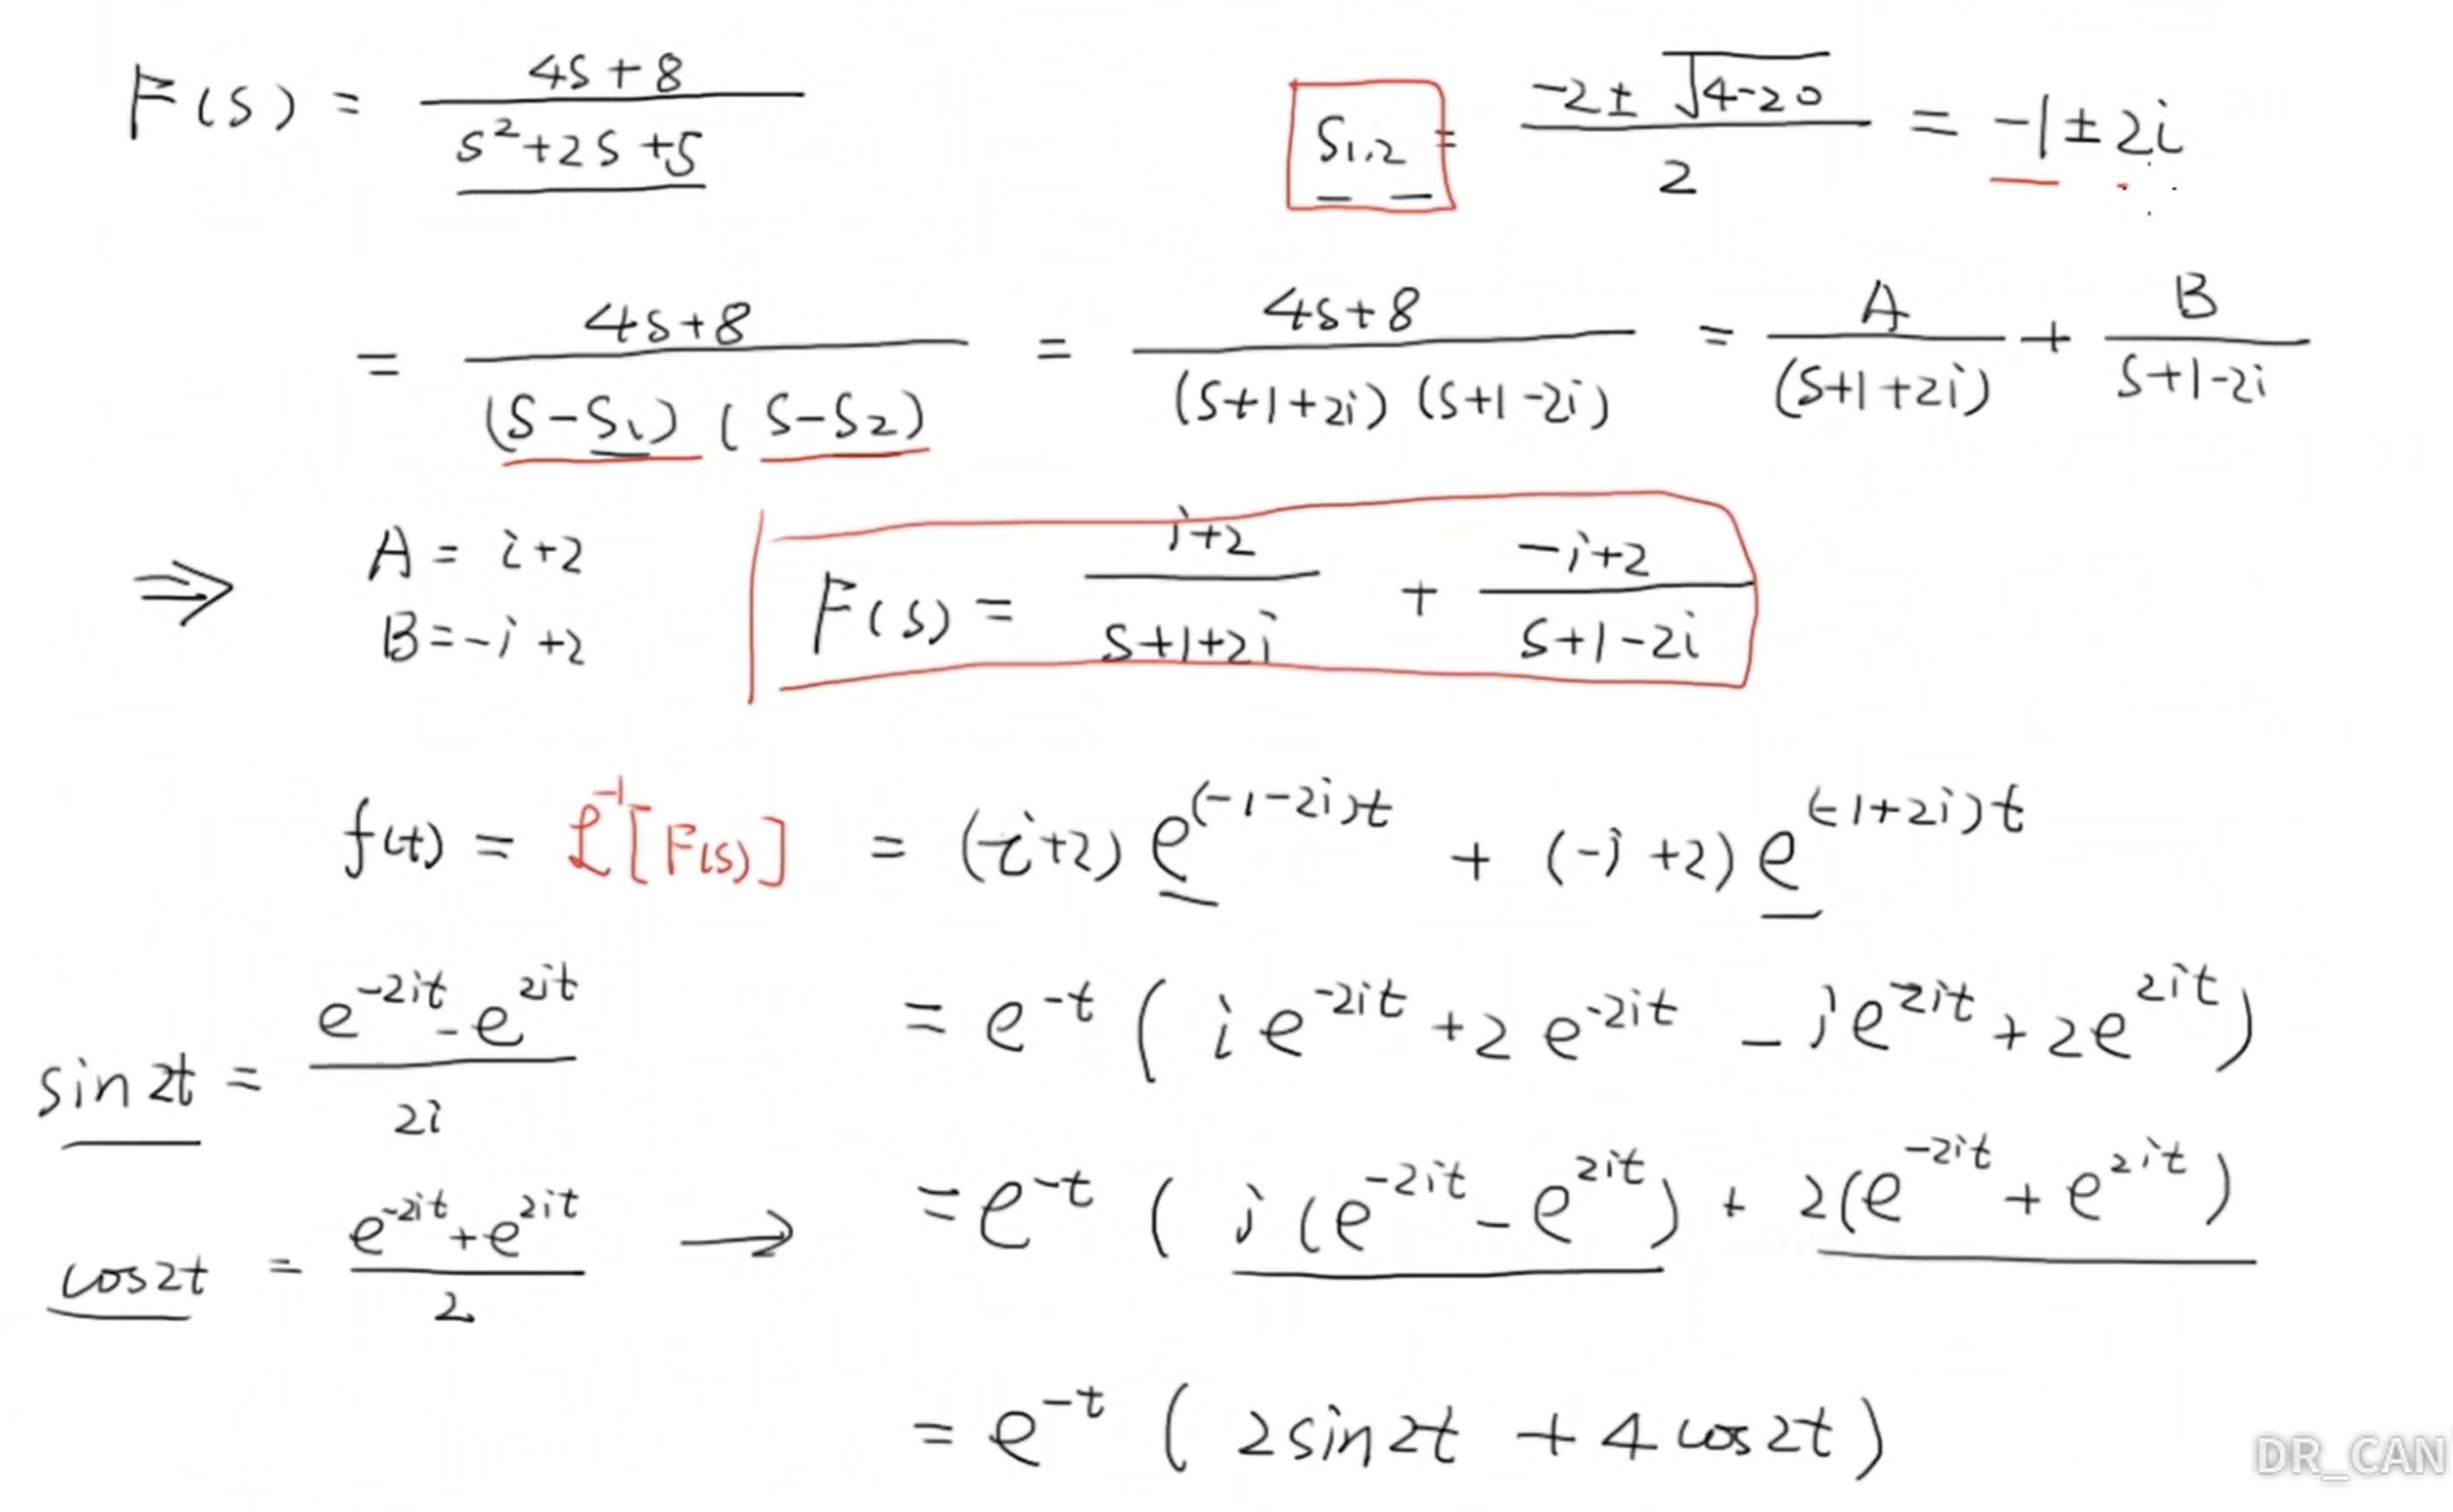 F(s) = (4s+8)/(s²+2s+5)
S₁,₂ = (-2±√(4-20))/2 = -1±2i
= (4s+8)/((s-s₁)(s-s₂)) = (4s+8)/((s+1+2i)(s+1-2i)) = A/(s+1+2i) + B/(s+1-2i)
⇒ A = i+2
B = -i+2
F(s) = (i+2)/(s+1+2i) + (-i+2)/(s+1-2i)
f(t) = ℒ⁻¹[F(s)] = (i+2)e^((-1-2i)t) + (-i+2)e^((-1+2i)t)
sin2t = (e^(-2it) - e^(2it))/(2i)
= e^(-t) (ie^(-2it) + 2e^(-2it) - ie^(2it) + 2e^(2it))
cos2t = (e^(-2it) + e^(2it))/2 → = e^(-t) (i(e^(-2it) - e^(2it)) + 2(e^(-2it) + e^(2it))
= e^(-t) (2sin2t + 4cos2t)
DR_CAN